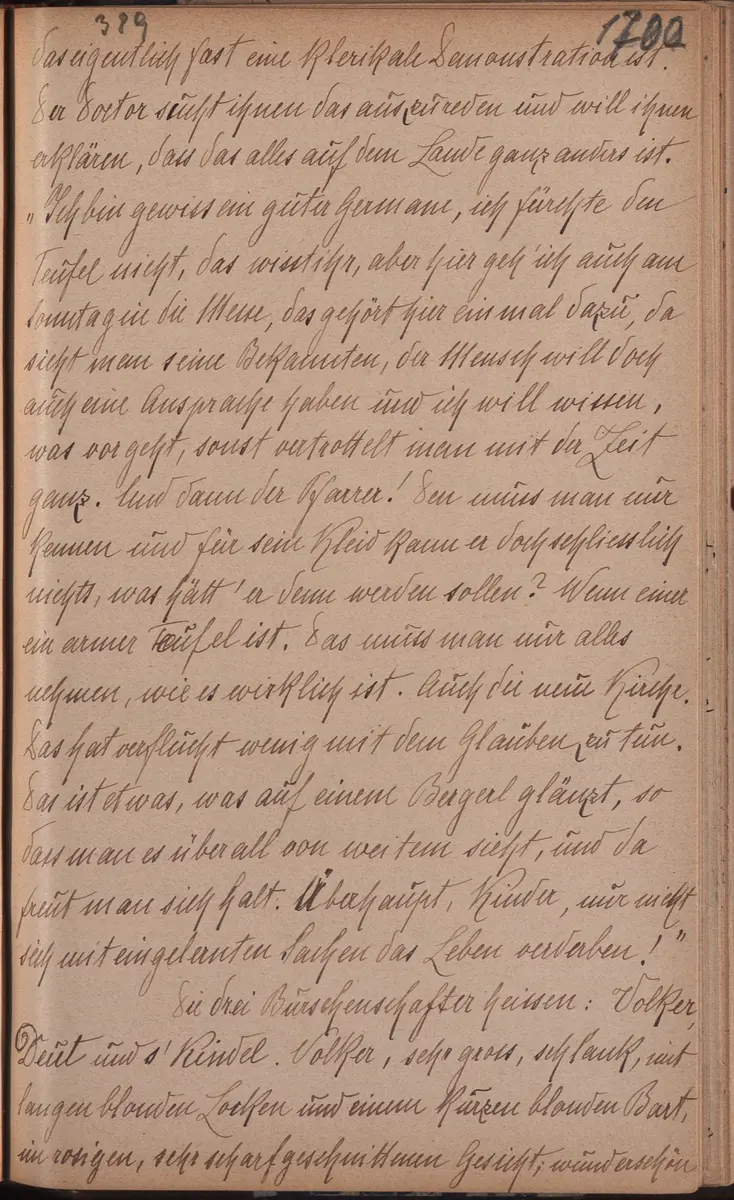 389
1700
das eigentlich fast eine klerikale Demonstration ist.
Der Doctor sucht ihnen das auszureden und will ihnen
erklären, dass das alles auf dem Lande ganz anders ist.
„Ich bin gewiss ein guter Germane, ich fürchte den
Teufel nicht, das wisst ihr, aber hier geh' ich auch am
Sonntag in die Messe, das gehört hier einmal dazu, da
sieht man seine Bekannten, der Mensch will doch
auch eine Ansprache haben und ich will wissen,
was vorgeht, sonst vertrottelt man mit der Zeit
ganz. Und dann der Pfarrer! Den muss man nur
kennen und für sein Kleid kann er doch schliesslich
nichts, was hätt' er denn werden sollen? Wenn einer
ein armer Teufel ist. Das muss man nur alles
nehmen, wie es wirklich ist. Auch die neue Kirche.
Das hat verflucht wenig mit dem Glauben zu tun.
Das ist etwas, was auf einem Bergerl glänzt, so
dass man es überall von weitem sieht, und da
freut man sich halt. Überhaupt, Kinder, nur nicht
sich mit eingelernten Sachen das Leben verderben!"
Die drei Burschenschafter heissen: Volker,
Deut und s' Kindel. Volker, sehr gross, schlank, mit
langen blonden Locken und einem kurzen blonden Bart,
im rosigen, sehr scharf geschnittenen Gesicht; wunderschön